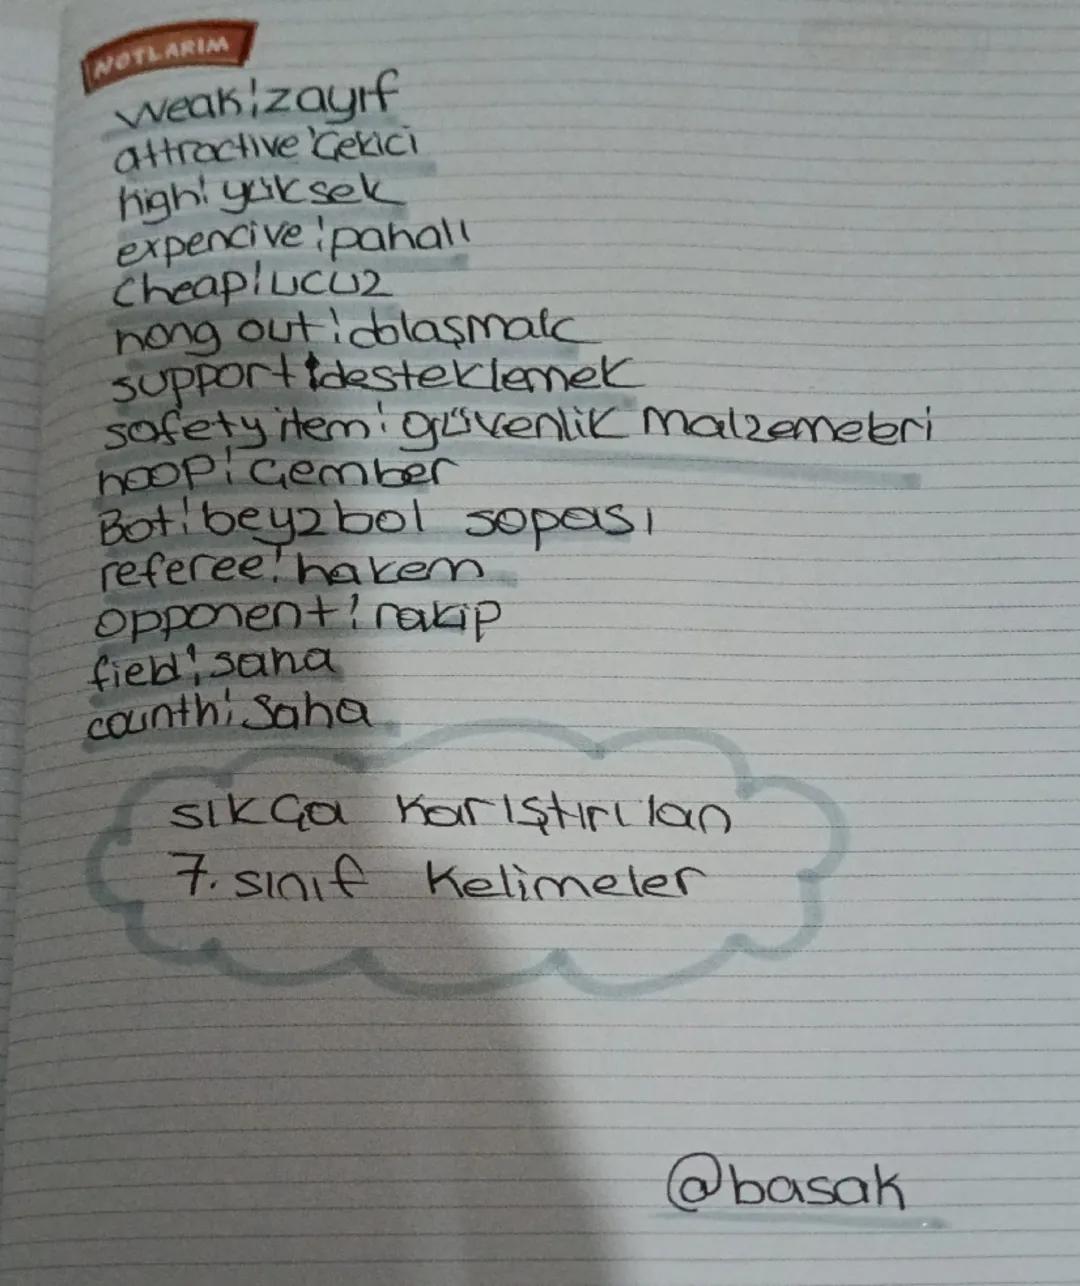 NOTLARIM
weak:zayıf
attractive:Çekici
high: yüksek
expencive:pahalı
Cheap:ucuz
hang out:dolaşmak
support:desteklemek
safety item: güvenlik malzemeleri
hoop:Çember
Bat:beyzbol sopası
referee:hakem
opponent: rakip
field:saha
counth:Saha
sıkça karıştırılan
7. sınıf kelimeler
@basak